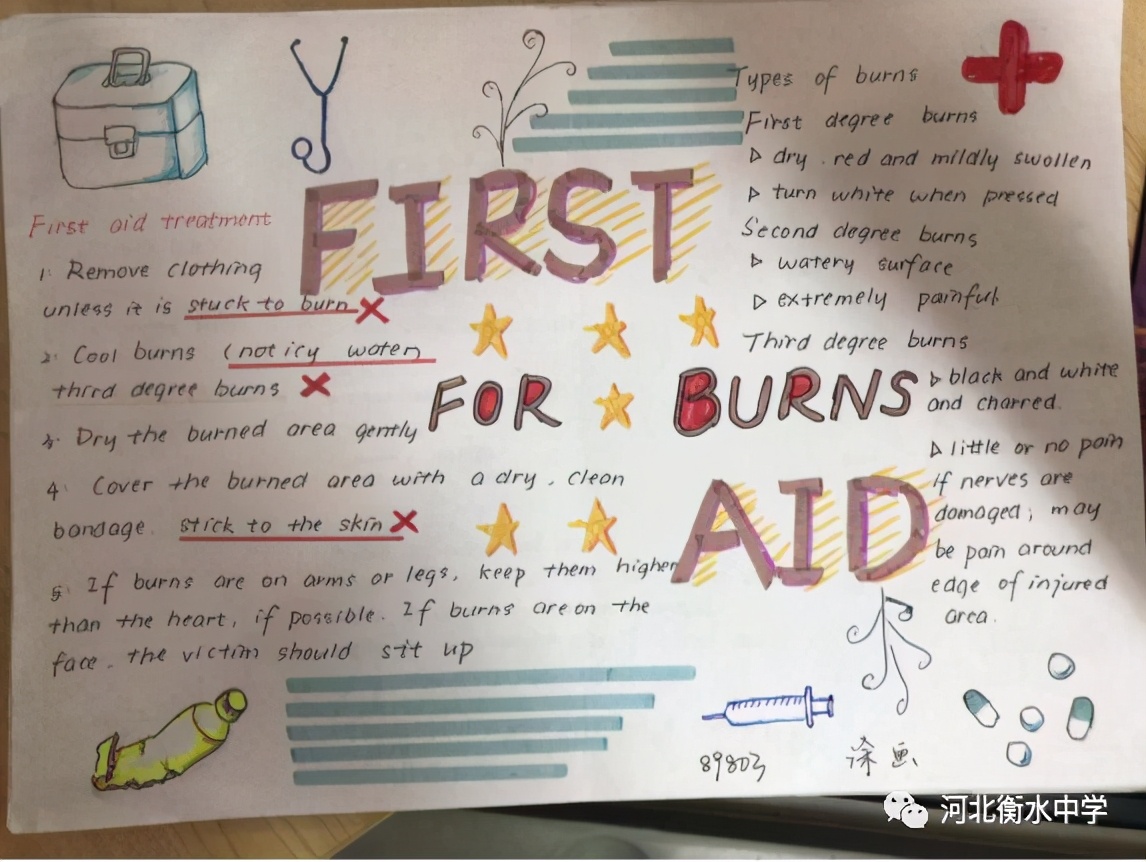 FIRST
FOR BURNS
AID
First aid treatment
1. Remove clothing
unless it is stuck to burn
2. Cool burns (not icy water)
third degree burns
3. Dry the burned area gently
4. Cover the burned area with a dry, clean
bandage. stick to the skin
5. If burns are on arms or legs, keep them higher
than the heart, if possible. If burns are on the
face, the victim should sit up
Types of burns
First degree burns
▷ dry, red and mildly swollen
▷ turn white when pressed
Second degree burns
▷ watery surface
▷ extremely painful
Third degree burns
▷ black and white
and charred.
▷ little or no pain
if nerves are
damaged; may
be pain around
edge of injured
area.
涂画
河北衡水中学